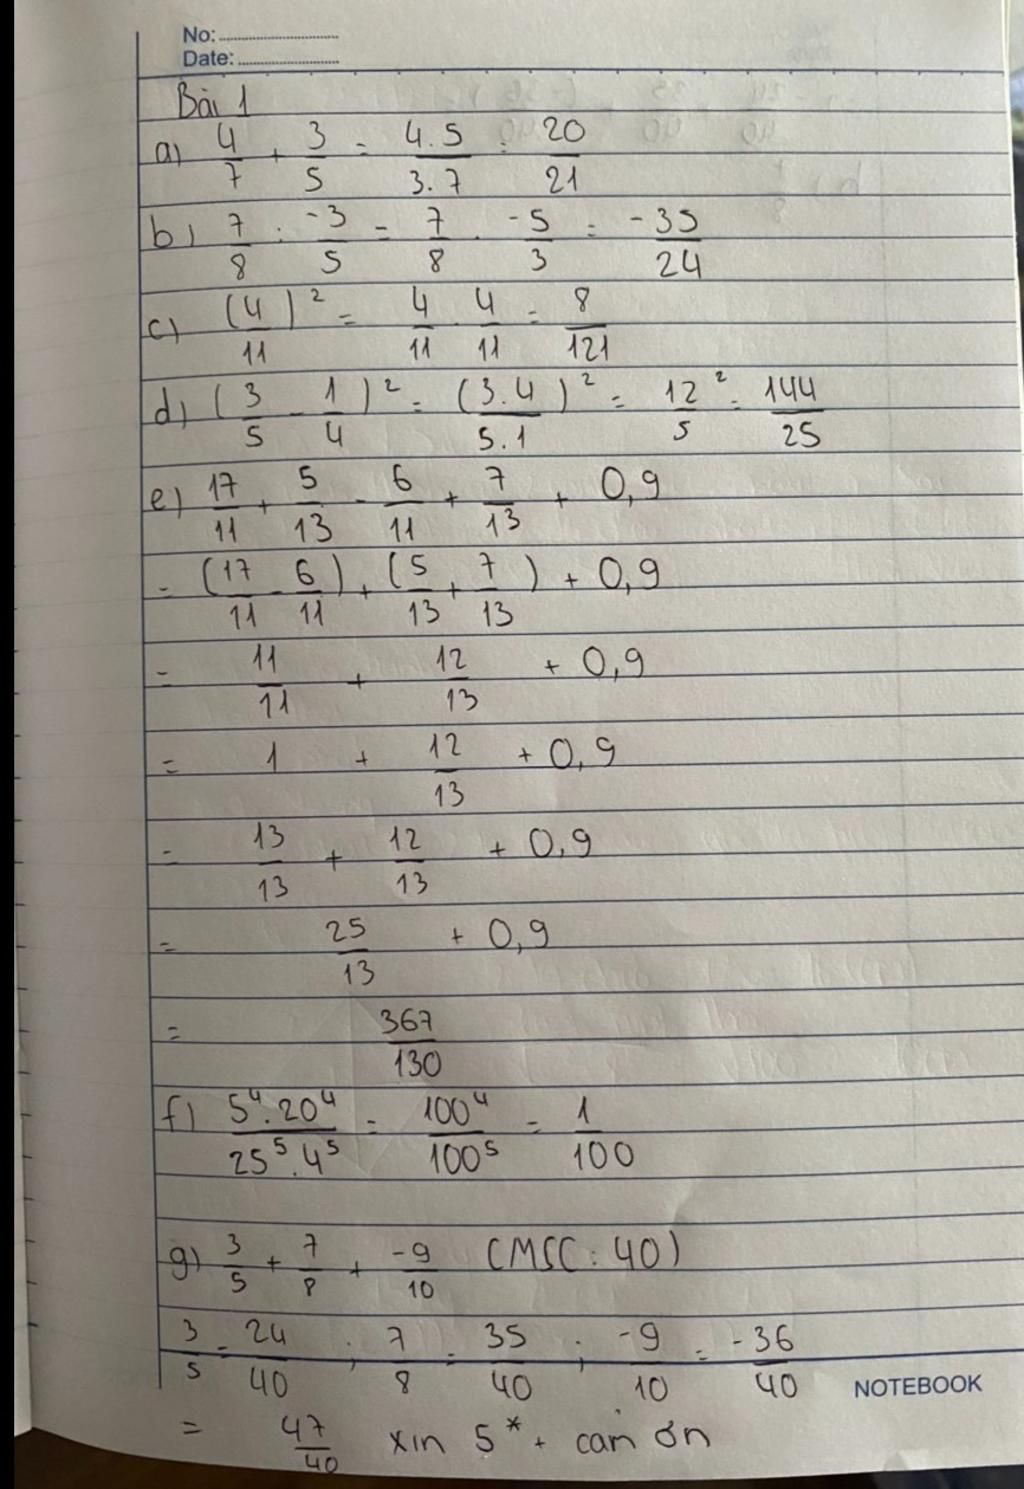 No:
Date:
Bài 1
a) 4/7 + 3/5 = 4.5/3.7 = 20/21
b) 7/8 : -3/5 = 7/8 . -5/3 = -35/24
c) (4/11)² = 4/11 . 4/11 = 8/121
d) (3/5 - 1/4)² = (3.4/5.1)² = 12²/5 = 144/25
e) 17/11 + 5/13 - 6/11 + 7/13 + 0,9
= (17/11 - 6/11) + (5/13 + 7/13) + 0,9
= 11/11 + 12/13 + 0,9
= 1 + 12/13 + 0,9
= 13/13 + 12/13 + 0,9
= 25/13 + 0,9
= 367/130
f) 5⁴.20⁴/25⁵.4⁵ = 100⁴/100⁵ = 1/100
g) 3/5 + 7/8 + -9/10 (MSC: 40)
3/5 = 24/40 ; 7/8 = 35/40 ; -9/10 = -36/40
NOTEBOOK
= 47/40 xin 5* + cảm ơn